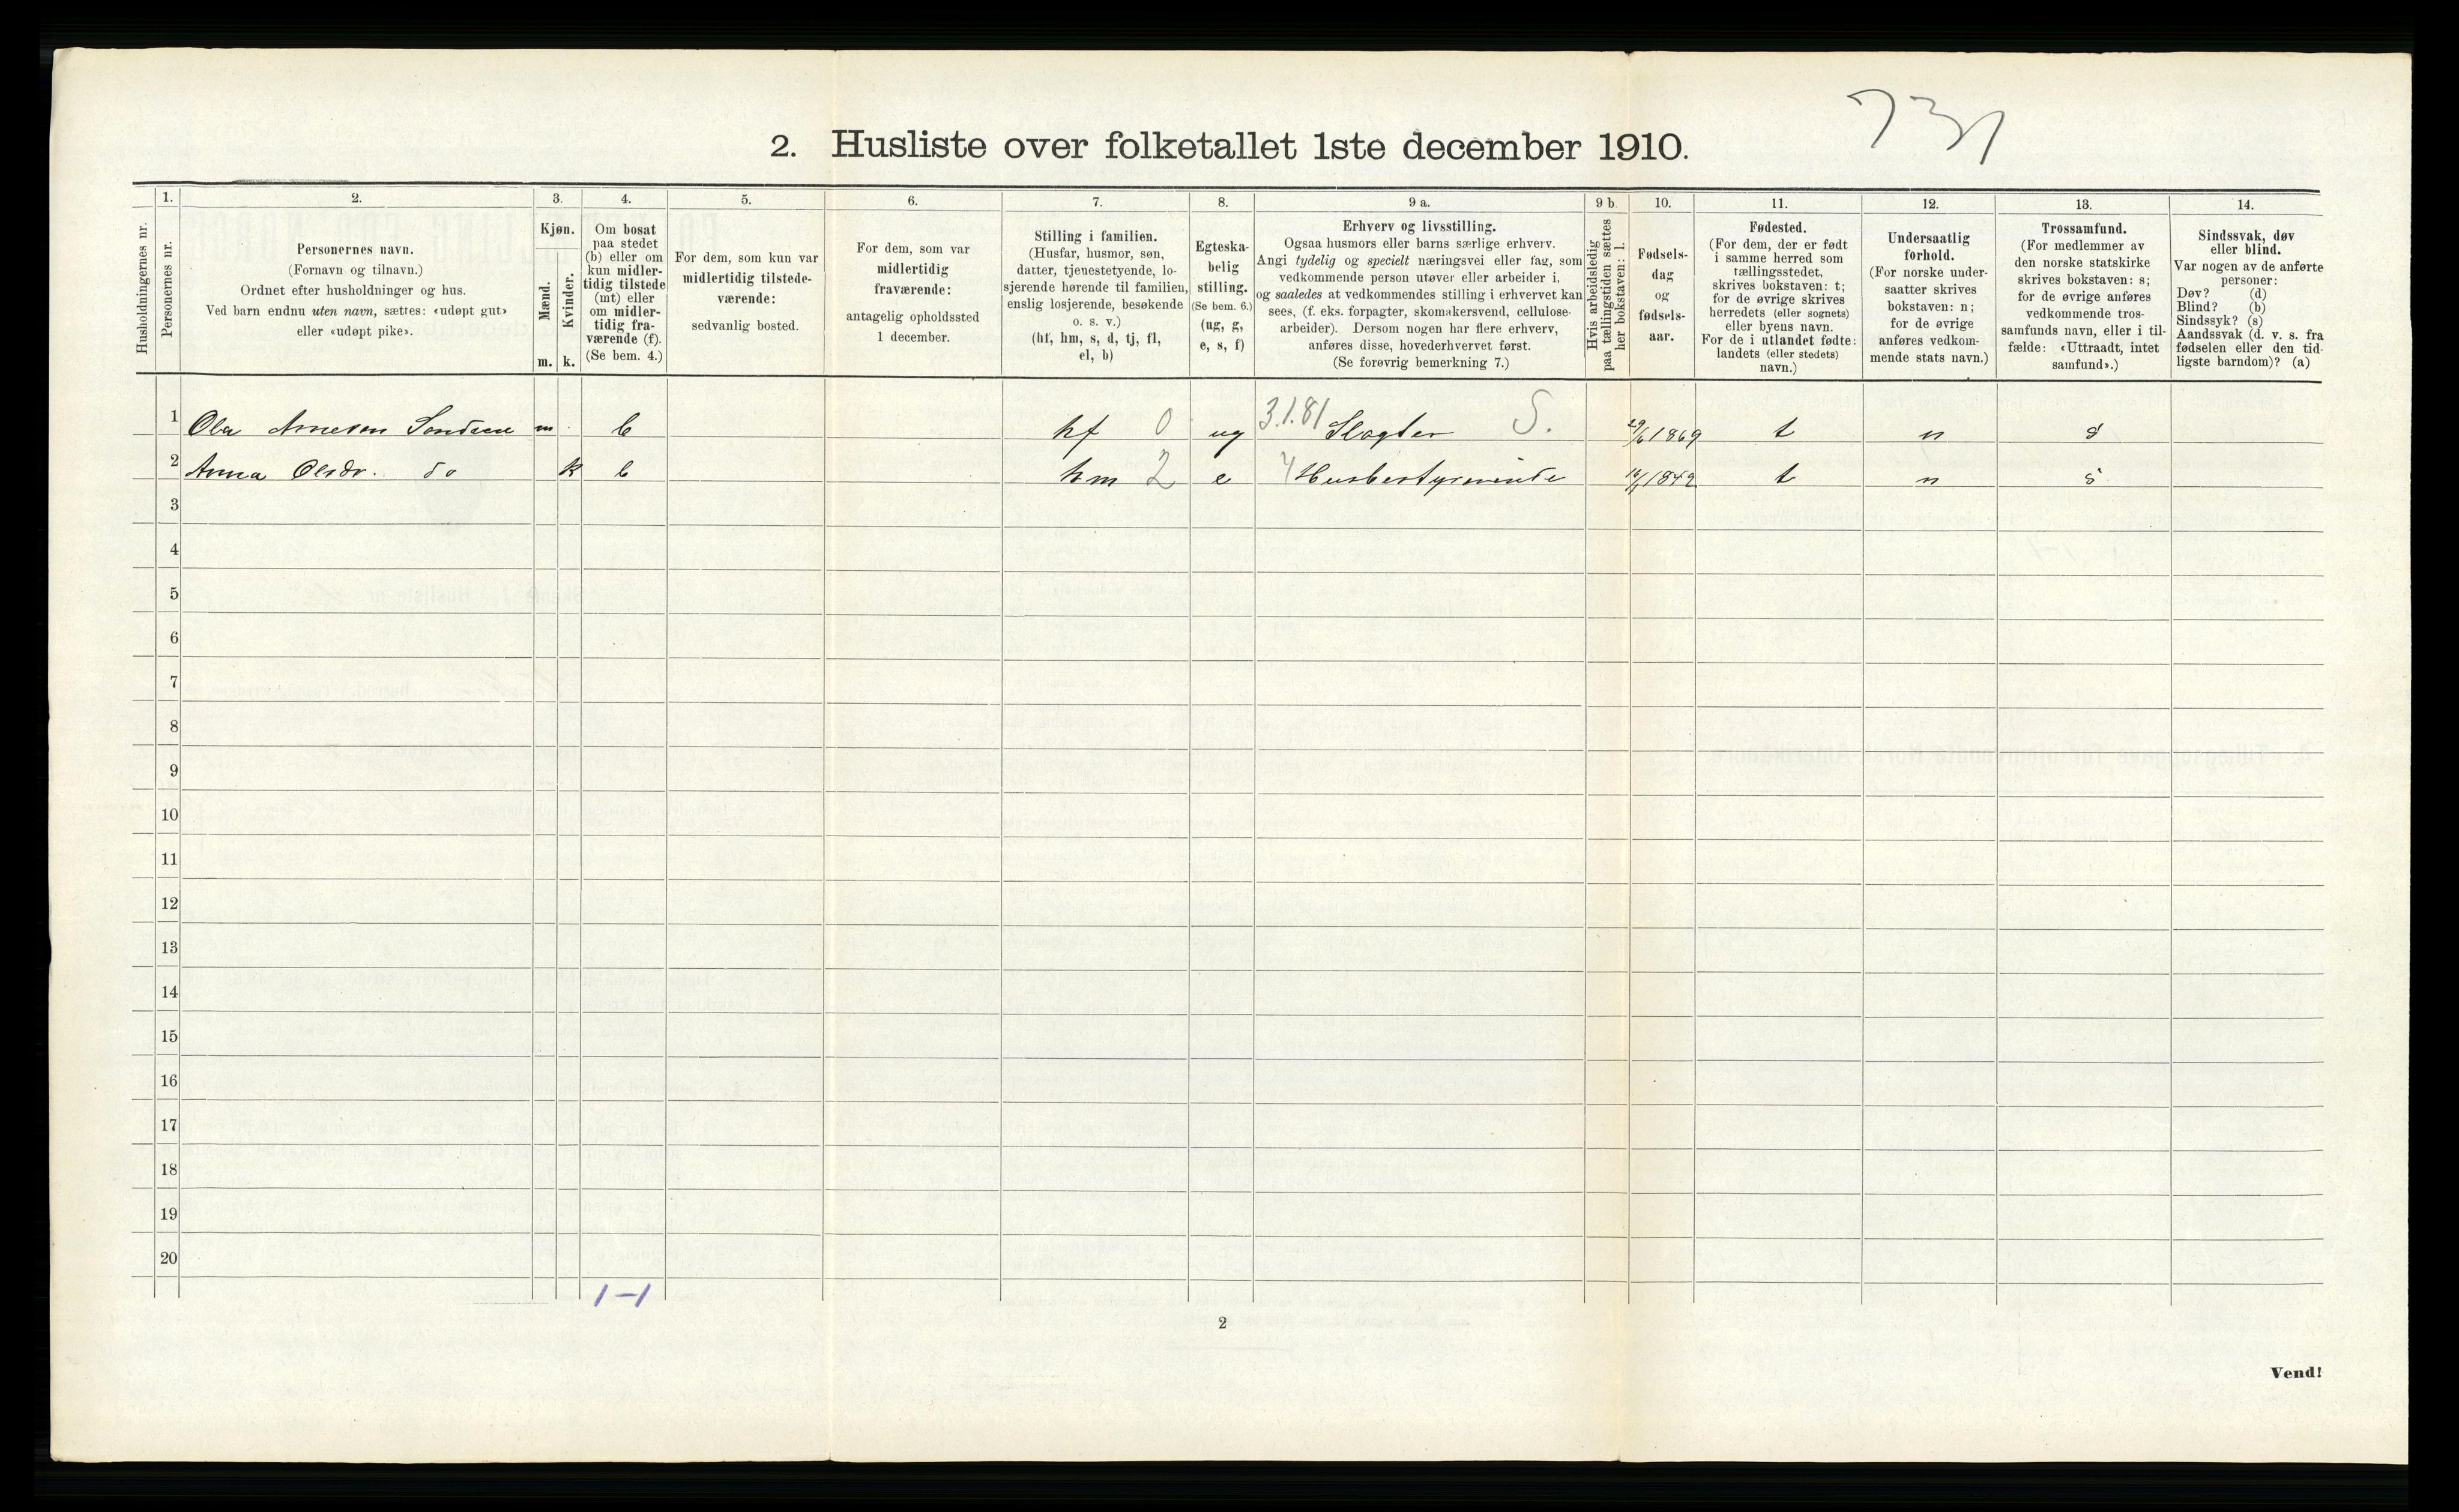 731
2. Husliste over folketallet 1ste december 1910.
Husholdningernes nr.
1.
Personernes nr.
2.
Personernes navn.
(Fornavn og tilnavn.)
Ordnet efter husholdninger og hus.
Ved barn endnu uten navn, sættes: «udøpt gut»
eller «udøpt pike».
3.
Kjøn.
Mænd.
Kvinder.
m. k.
4.
Om bosat
paa stedet
(b) eller om
kun midler-
tidig tilstede
(mt) eller
om midler-
tidig fra-
værende (f).
(Se bem. 4.)
5.
For dem, som kun var
midlertidig tilstede-
værende:
sedvanlig bosted.
6.
For dem, som var
midlertidig
fraværende:
antagelig opholdssted
1 december.
7.
Stilling i familien.
(Husfar, husmor, søn,
datter, tjenestetyende, lo-
sjerende hørende til familien,
enslig losjerende, besøkende
o. s. v.)
(hf, hm, s, d, tj, fl,
el, b)
8.
Egteska-
belig
stilling.
(Se bem. 6.)
(ug, g,
e, s, f)
9 a.
Erhverv og livsstilling.
Ogsaa husmors eller barns særlige erhverv.
Angi tydelig og specielt næringsvei eller fag, som
vedkommende person utøver eller arbeider i,
og saaledes at vedkommendes stilling i erhvervet kan
sees, (f. eks. forpagter, skomakersvend, cellulose-
arbeider). Dersom nogen har flere erhverv,
anføres disse, hovederhvervet først.
(Se forøvrig bemerkning 7.)
9 b.
Hvis arbeidsledig
paa tællingstiden sættes
her bokstaven: l.
10.
Fødsels-
dag
og
fødsels-
aar.
11.
Fødested.
(For dem, der er født
i samme herred som
tællingsstedet,
skrives bokstaven: t;
for de øvrige skrives
herredets (eller sognets)
eller byens navn.
For de i utlandet fødte:
landets (eller stedets)
navn.)
12.
Undersaatlig
forhold.
(For norske under-
saatter skrives
bokstaven: n;
for de øvrige
anføres vedkom-
mende stats navn.)
13.
Trossamfund.
(For medlemmer av
den norske statskirke
skrives bokstaven: s;
for de øvrige anføres
vedkommende tros-
samfunds navn, eller i til-
fælde: «Uttraadt, intet
samfund».)
14.
Sindssvak, døv
eller blind.
Var nogen av de anførte
personer:
Døv? (d)
Blind? (b)
Sindssyk? (s)
Aandssvak (d. v. s. fra
fødselen eller den tid-
ligste barndom)? (a)
1 Ola Arnesen m b hf 0 ug 3.1.81 Slagter S. 29/6 1869 t n s
2 Anna Olsdr. do k b hm 2 e 4 Husbestyrerinde 1842 t n s
3
4
5
6
7
8
9
10
11
12
13
14
15
16
17
18
19
20
1-1
2
Vend!